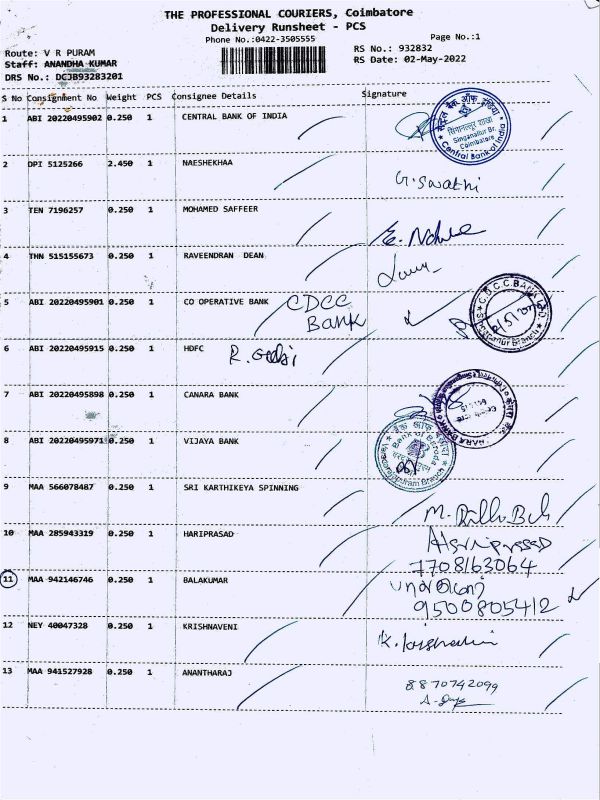 THE PROFESSIONAL COURIERS, Coimbatore
Delivery Runsheet - PCS
Phone No.:0422-3505555
Page No.:1
Route: V R PURAM
RS No.: 932832
Staff: ANANDHA KUMAR
RS Date: 02-May-2022
DRS No.: DCJB93283201
S No Consignment No Weight PCS Consignee Details Signature
1 ABI 20220495902 0.250 1 CENTRAL BANK OF INDIA
सिंगानल्लूर शाखा
Singanallur Br.
Coimbatore
Central Bank of India
2 DPI 5125266 2.450 1 NAESHEKHAA
G. Swathi
3 TEN 7196257 0.250 1 MOHAMED SAFFEER
4 THN 515155673 0.250 1 RAVEENDRAN DEAN
5 ABI 20220495901 0.250 1 CO OPERATIVE BANK CDCC
Bank
6 ABI 20220495915 0.250 1 HDFC
7 ABI 20220495898 0.250 1 CANARA BANK
8 ABI 20220495971 0.250 1 VIJAYA BANK
बैंक ऑफ़ बड़ौदा
Bank of Baroda
9 MAA 566078487 0.250 1 SRI KARTHIKEYA SPINNING
10 MAA 285943319 0.250 1 HARIPRASAD Hariprasad
7708163064
11 MAA 942146746 0.250 1 BALAKUMAR
9500805412
12 NEY 40047328 0.250 1 KRISHNAVENI
13 MAA 941527928 0.250 1 ANANTHARAJ
8870742099